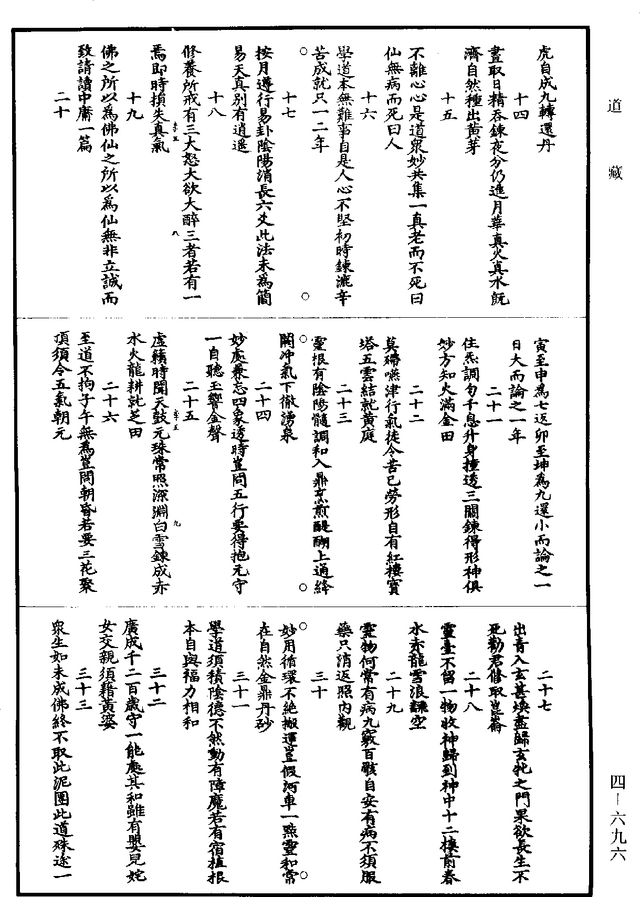 道藏
虎自成九轉還丹
十四
盡取日精吞鍊夜分仍進月華真火真水既
濟自然種出黃芽
十五
不離心心是道眾妙共集一真老而不死曰
仙無病而死曰人
十六
學道本無難事自是人心不堅初時鍊漉辛
苦成就只一二年
十七
按月遵行易卦陰陽消長六爻此法未為簡
易天真別有逍遥
十八
修養所戒有三大怒大欲大醉三者若有一
焉即時損失真氣
十九
佛之所以為佛仙之所以為仙無非立誠而
致請讀中庸一篇
二十
寅至申為七返卯至坤為九還小而論之一
日大而論之一年
二十一
住炁調勻千息升身撞透三關鍊得形神俱
妙方知火滿金田
二十二
莫殢嚥津行氣徒令苦己勞形自有紅樓寶
塔五雲結就黃庭
二十三
靈根有陰陽髓調和入鼎烹煎醍醐上通絳
闕冲氣下徹湧泉
二十四
妙處兼忘四象透時豈問五行要得抱元守
一自聽玉響金聲
二十五
虛籟時聞天鼓元珠常照深淵白雪鍊成赤
水火龍耕就芝田
二十六
至道不拘子午無為豈問朝昏若要三花聚
頂須令五氣朝元
二十七
出青入玄甚煥盡歸玄牝之門果欲長生不
死勤君修取崑崙
二十八
靈臺不留一物收神歸到神中十二樓前春
水赤龍雪浪謙空
二十九
靈物何常有病九竅百骸自安有病不須服
藥只消返照內觀
三十
妙用循環不絕搬運豈假河車一點靈和常
在自然金鼎丹砂
三十一
學道須積陰德不然動有障魔若有宿植根
本自與福力相和
三十二
廣成千二百歲守一能處其和雖有嬰兒姹
女交親須藉黃婆
三十三
眾生如未成佛終不取此泥團此道殊途一
四—六九六